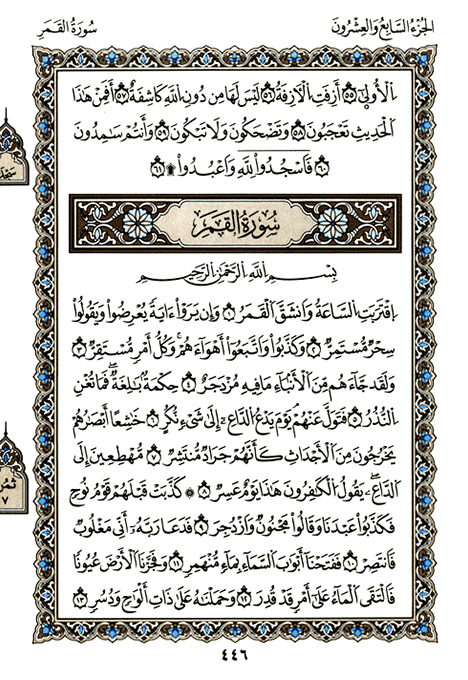 الجزء السابع والعشرون
سورة القمر
الْأُولَىٰ ٥٥ أَزِفَتِ الْآزِفَةُ ٥٦ لَيْسَ لَهَا مِن دُونِ اللَّهِ كَاشِفَةٌ ٥٧ أَفَمِنْ هَٰذَا
الْحَدِيثِ تَعْجَبُونَ ٥٨ وَتَضْحَكُونَ وَلَا تَبْكُونَ ٥٩ وَأَنتُمْ سَٰمِدُونَ
٦٠ فَاسْجُدُوا۟ لِلَّهِ وَاعْبُدُوا۟ ۩ ٦١
سَجْدَة
سورة القمر
بِسْمِ اللَّهِ الرَّحْمَٰنِ الرَّحِيمِ
اِقْتَرَبَتِ السَّاعَةُ وَانشَقَّ الْقَمَرُ ١ وَإِن يَرَوْا۟ ءَايَةً يُعْرِضُوا۟ وَيَقُولُوا۟
سِحْرٌ مُّسْتَمِرٌّ ٢ وَكَذَّبُوا۟ وَاتَّبَعُوٓا۟ أَهْوَآءَهُمْ وَكُلُّ أَمْرٍ مُّسْتَقِرٌّ ٣
وَلَقَدْ جَآءَهُم مِّنَ الْأَنۢبَآءِ مَا فِيهِ مُزْدَجَرٌ ٤ حِكْمَةٌۢ بَٰلِغَةٌ فَمَا تُغْنِ
النُّذُرُ ٥ فَتَوَلَّ عَنْهُمْ يَوْمَ يَدْعُ الدَّاعِۦٓ إِلَىٰ شَىْءٍ نُّكُرٍ ٦ خُشَّعًا أَبْصَٰرُهُمْ
يَخْرُجُونَ مِنَ الْأَجْدَاثِ كَأَنَّهُمْ جَرَادٌ مُّنتَشِرٌ ٧ مُّهْطِعِينَ إِلَى
الدَّاعِۦ يَقُولُ الْكَٰفِرُونَ هَٰذَا يَوْمٌ عَسِرٌ ٨ كَذَّبَتْ قَبْلَهُمْ قَوْمُ نُوحٍ
فَكَذَّبُوا۟ عَبْدَنَا وَقَالُوا۟ مَجْنُونٌ وَازْدُجِرَ ٩ فَدَعَا رَبَّهُۥٓ أَنِّى مَغْلُوبٌ
فَانتَصِرْ ١٠ فَفَتَحْنَآ أَبْوَٰبَ السَّمَآءِ بِمَآءٍ مُّنْهَمِرٍ ١١ وَفَجَّرْنَا الْأَرْضَ عُيُونًا
فَالْتَقَى الْمَآءُ عَلَىٰٓ أَمْرٍ قَدْ قُدِرَ ١٢ وَحَمَلْنَٰهُ عَلَىٰ ذَاتِ أَلْوَٰحٍ وَدُسُرٍ ١٣
٤٤٦